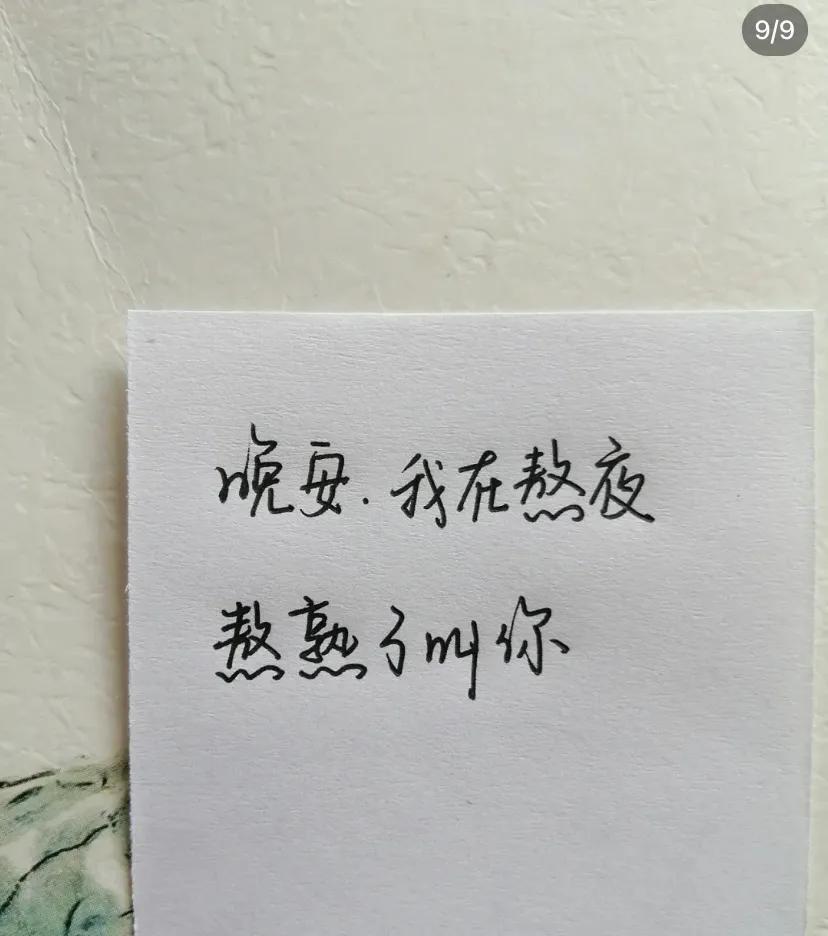 9/9
晚安.我在熬夜
熬熟了叫你